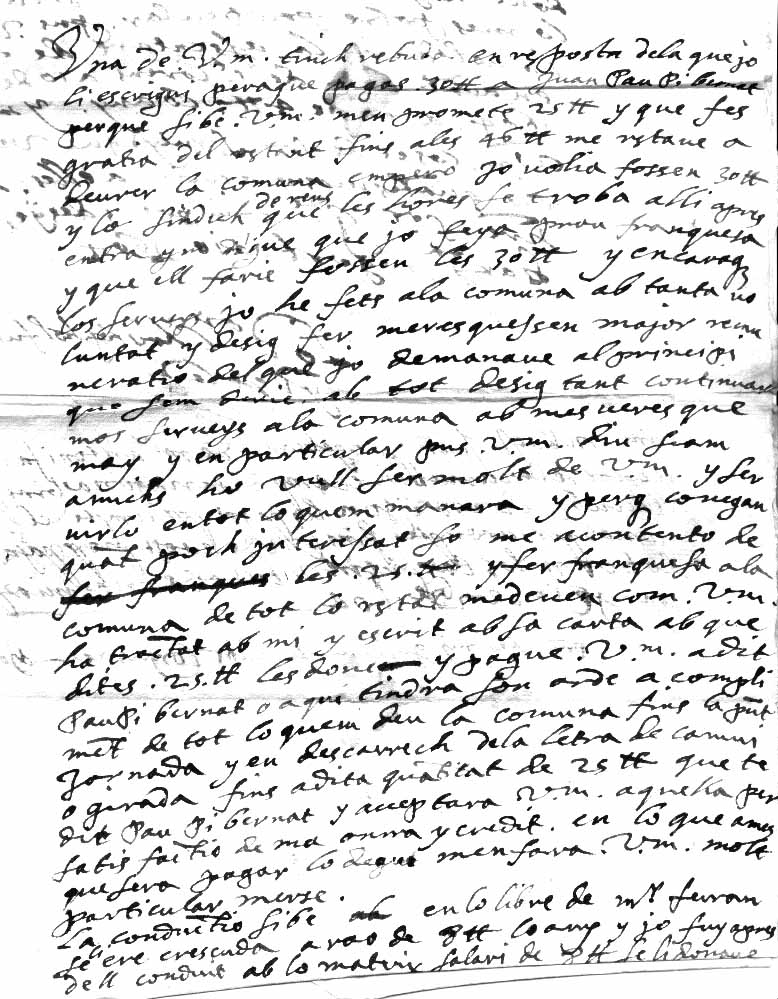 Una de V.m. tinch rebuda en resposta dela que jo
li escrigui peraque pagas 30 ħ a Juan Pau Pi bernat
perque si be V.m. men promete 25 ħ y que fes
gratia del restant fins ales 46 ħ me restave a
deurer la comuna empero jo volia fossen 30 ħ
y lo sindich de reus que les hores se troba alli apres
entra y no digue que jo feya gran franquesa
y que ell farie fossen les 30 ħ y encaraq
los serveys jo he fets ala comuna ab tanta vo
luntat y desig fer meresquessen major remu
neratio del que jo demanave al principi
que som darie ab tot desig tant continuar
mos serveys ala comuna ab mes veres que
may y en particular pus V.m. diu siam
amichs ho vull ser molt de V.m. y ser
virlo en tot lo quem manara y perq conegan
quāt poch interessat so me acontento de
les 25 ħ y fer franquesa ala
comuna de tot lo restāt medeuen com V.m.
ha tractat ab mi y escrit ab sa carta ab que
dites 25 ħ les done y pague V.m. a dit
Pau Pi bernat o a que tindra son orde a compli
mēt de tot lo quem deu la comuna fins la pñt
Jornada y en descarrech dela letra de cambi
o girada fins a dita quātitat de 25 ħ que te
dit Pau Pi bernat y acceptara V.m. aquella per
satisfactio de ma onra y credit en lo que ames
que sera pagar lo degut men fara V.m. molt
particular merse.
La conductio si be en lo libre de mᵉ ferran
se ere crescuda a rao de 8 ħ lo any y jo fuy apres
dell conduit ab lo mateix salari de 8 ħ se li donave